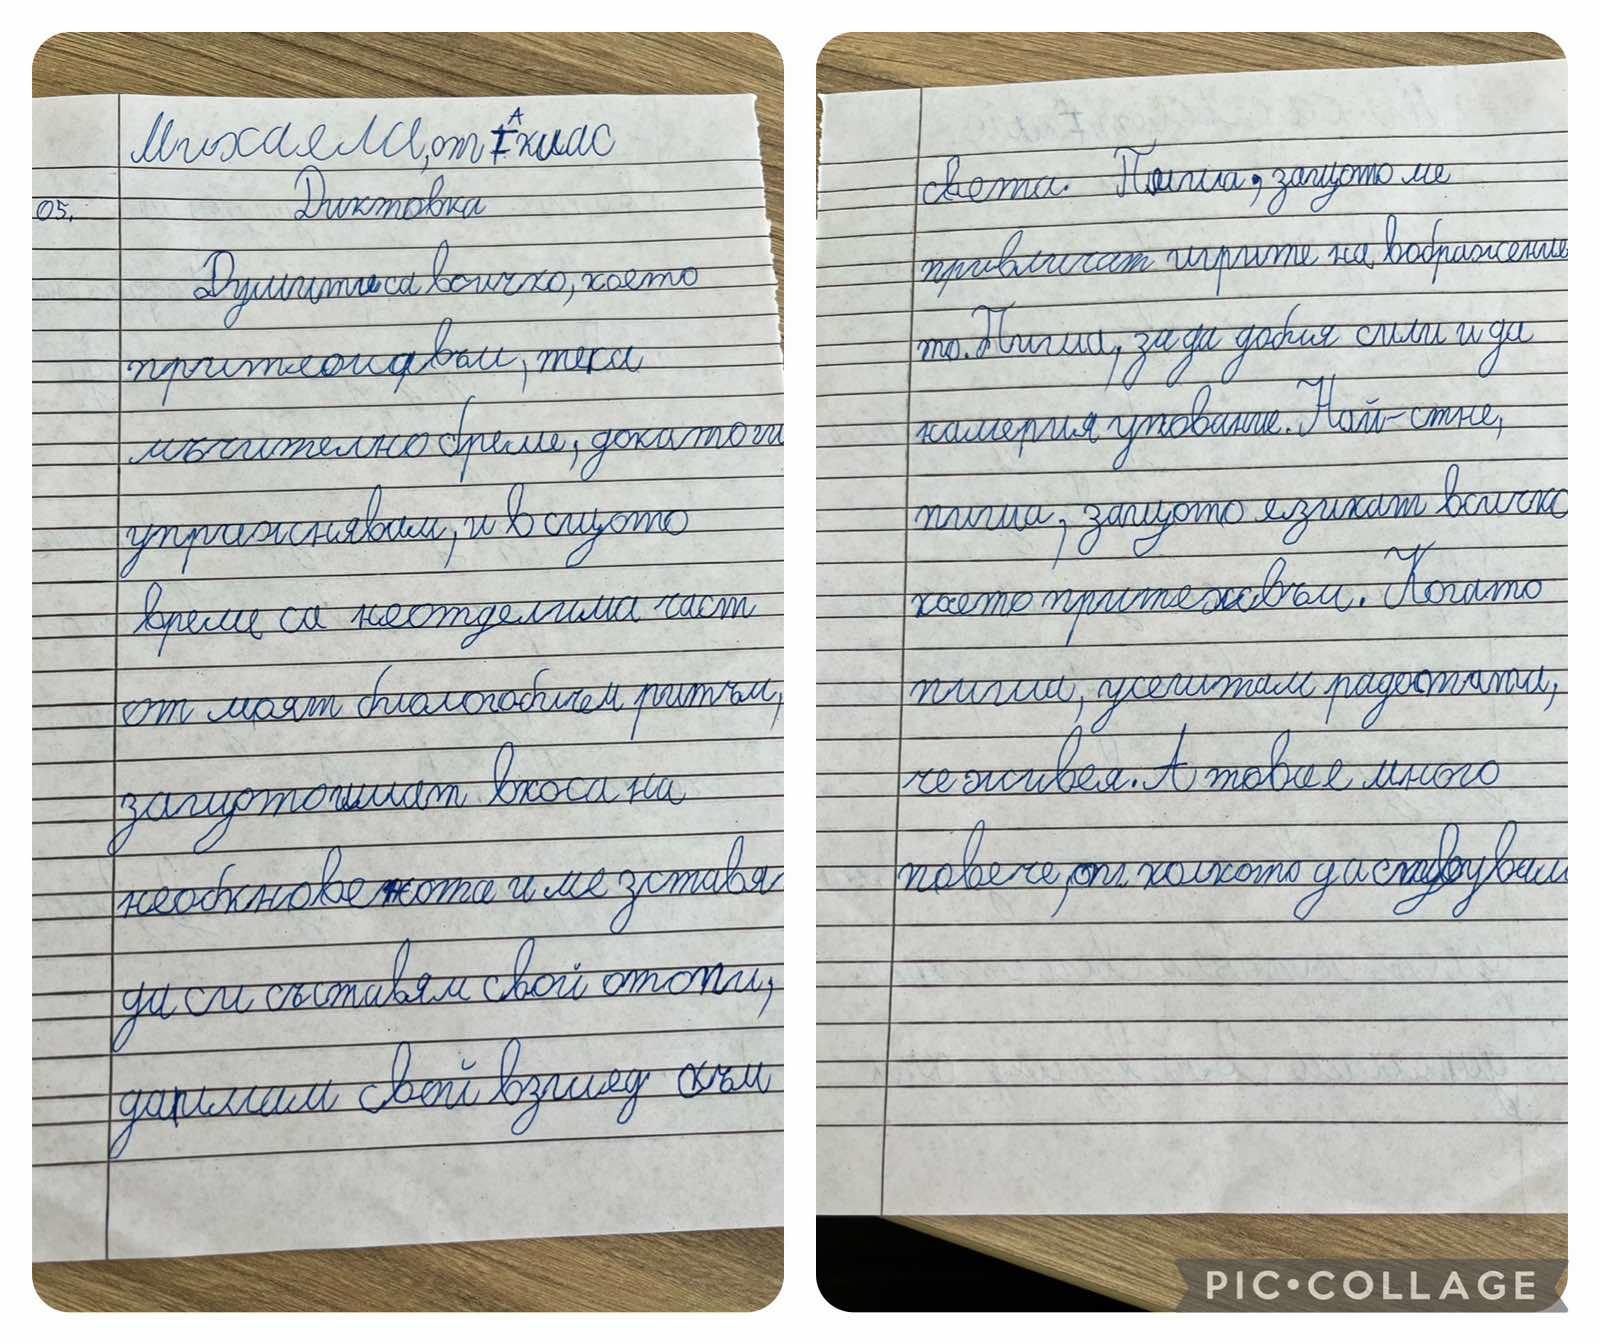 Михаела, от I А клас
05.
Диктовка
Думити са всичко, което
притеоидвъм, теса
мъчително бреме, докато ги
упражснявам, и в същото
време са неотделима част
от моят биологобичем ритъм,
защото имат вкоса на
необкновеното и ме зставя
да си съставям свой отопи,
да имам свой взгляд скъм
света. Пиша, защото ме
привличат игрите на вображение
то. Пиша, за да добия сили и да
намерия упование. Най-стне,
пиша, защото язикат всичко
което притеживъм. Когато
пиша, усещтам радостата,
че живея. А това е много
повече, от колкото да
PIC•COLLAGE